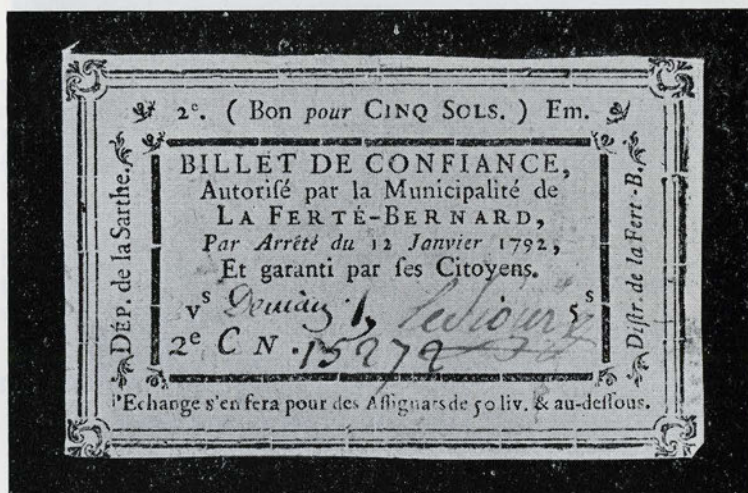 2e. ( Bon pour CINQ SOLS. ) Em.
DÉP. de la Sarthe.
BILLET DE CONFIANCE,
Autorisé par la Municipalité de
LA FERTÉ-BERNARD,
Par Arrêté du 12 Janvier 1792,
Et garanti par ses Citoyens.
vs 5s
2e C N. 15272
Distr. de la Fert-B.
l'Echange s'en fera pour des Assignats de 50 liv. & au-dessous.